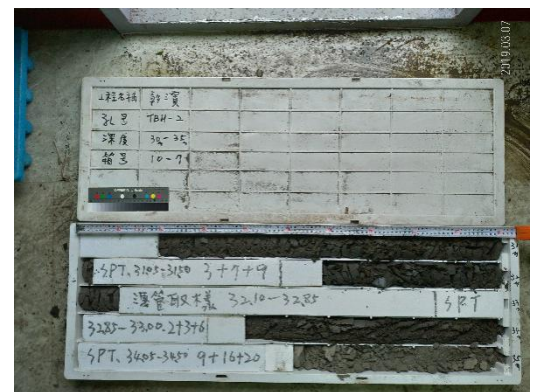 2019.03.07
工程名稱 彰濱
孔号 TBH-2
深度 30-35
箱号 10-7
SPT, 31.05-31.50 3+7+9
薄管取樣 32.10-32.85 SPT
32.85-33.00. 2+3+6
SPT, 34.05-34.50 9+16+20